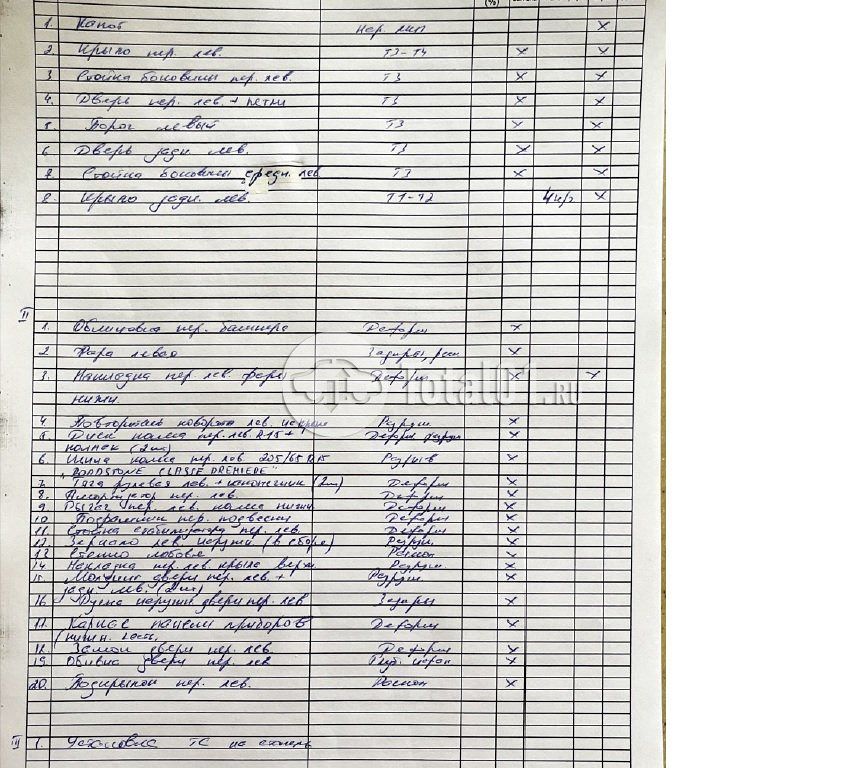 (%)
1. Капот Нер. лкп х
2. Крыло пер. лев. Т3-Т4 х х
3 Стойка боковины пер. лев. Т3 х х
4. Дверь пер. лев. + петли Т3 х х
5. Порог левый Т3 х х
6 Дверь задн. лев. Т3 х х
Стойка боковины средн. лев Т3 х х
8. Крыло задн. лев. Т1-Т2 х
II
1. Облицовка пер. бампера Деформ х
2 Фара левая х
3. Накладка пер. лев. фары Деформ х х
нижн.
TotalO1.RU
4. Повторитель поворота лев. Разруш х
5. Диск колеса пер. лев. R15 + Деформ х
колпак (2шт)
6. Шина колеса пер. лев. 205/65 R15 Разрыв х
"ROADSTONE CLASSE PREMIERE"
7. Тяга рулевая лев. + наконечник (2шт) Деформ х
8. Амортизатор пер. лев. Деформ х
9 Рычаг пер. лев. колеса нижн. Деформ х
10 Подрамник пер. подвески Деформ х
11. Стойка стабилизатора пер. лев. Деформ х
12. Зеркало лев. наружн (в сборе) Разруш. х
13 Стекло лобовое Раскол х
14 Накладка пер. лев. крыла верхн. Разруш х
15. Молдинг двери пер. лев. + Разруш х
задн. лев. (2шт)
16 Ручка наружн двери пер. лев Задиры х
17. Каркас панели приборов Деформ х
18. Замок двери пер. лев. Деформ х
19. Обивка двери пер. лев х
20. Подкрылок пер. лев. Раскол х
III 1. Установка ТС на стапель